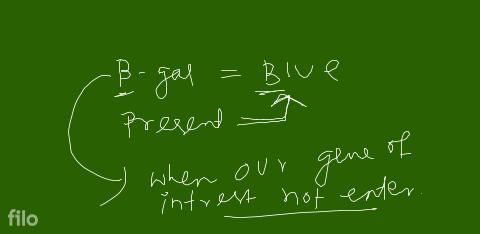 B- gal = Blue
Present
when our gene of
intrest not enter.
filo